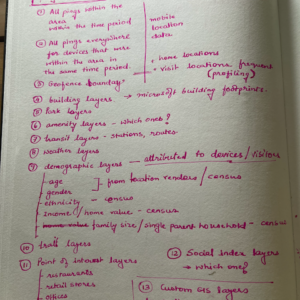 ① All pings within the
area
within the time period
mobile
location
data
② All pings everywhere
for devices that were
within the area in
the same time period.
• home locations
• visit locations frequent
(profiling)
③ Geofence boundary
④ building layers → microsoft building footprints.
⑤ Park layers
⑥ amenity layers - which ones?
⑦ transit layers - stations, routes
⑧ weather layers
⑨ demographic layers → attributed to devices/visitors
- age
gender
from location vendors / census
- ethnicity - census
- Income / home value - census
- family size / single parent household - census
⑩ trail layers
⑪ Point of interest layers
- restaurants
- retail stores
- offices
⑫ Social Index layers
→ which one?
⑬ Custom GIS layers